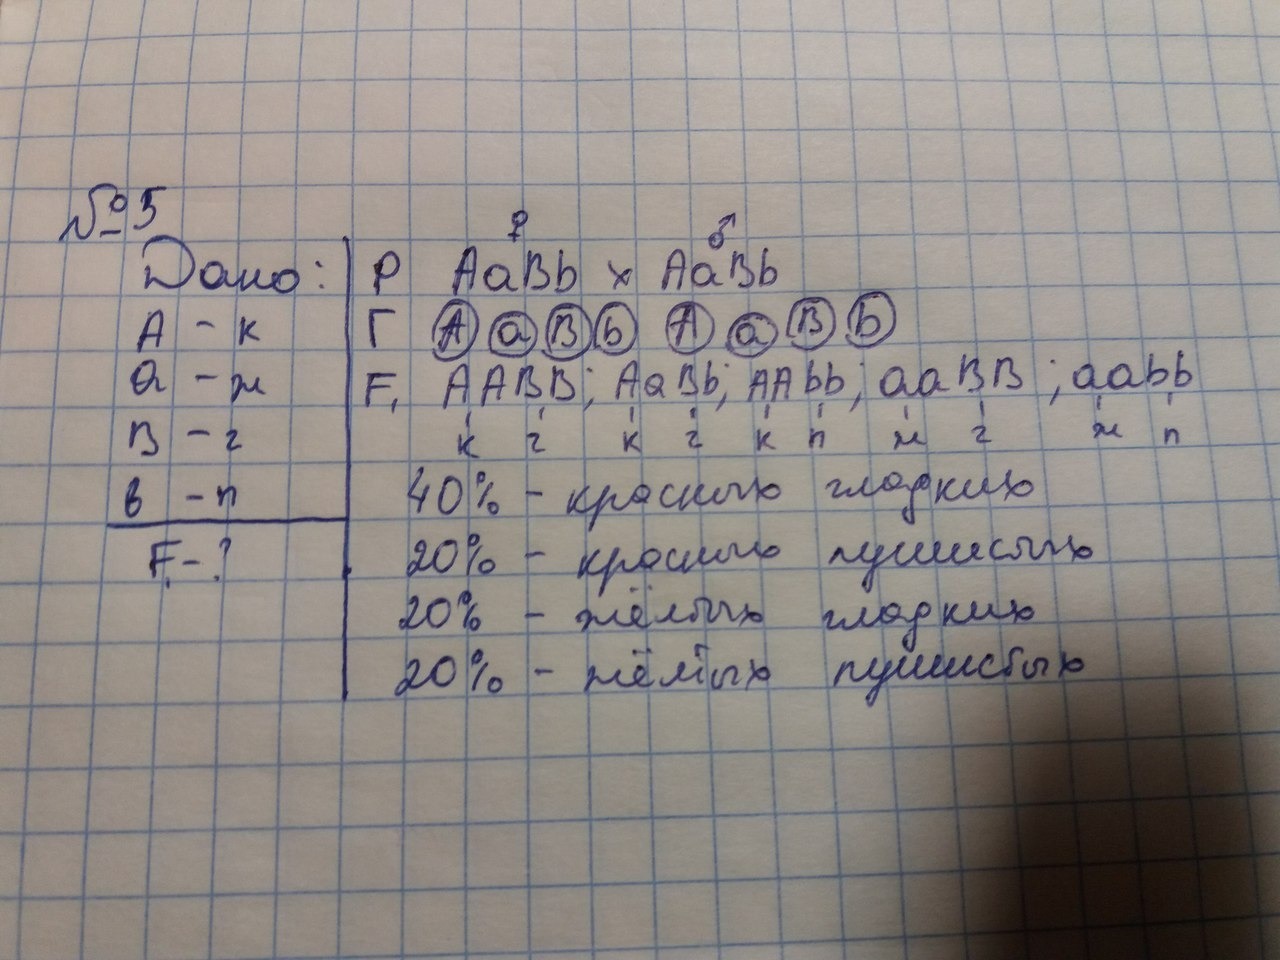 №5
Дано:
A - к
a - ж
B - г
в - п
F₁ - ?
♀ ♂
P AaBb x AaBb
Г A a B b A a B b
F₁ AABB; AaBb; AAbb; aaBB; aabb
к г к г к п ж г ж п
40% - красных гладких
20% - красных пушистых
20% - жёлтых гладких
20% - жёлтых пушистых